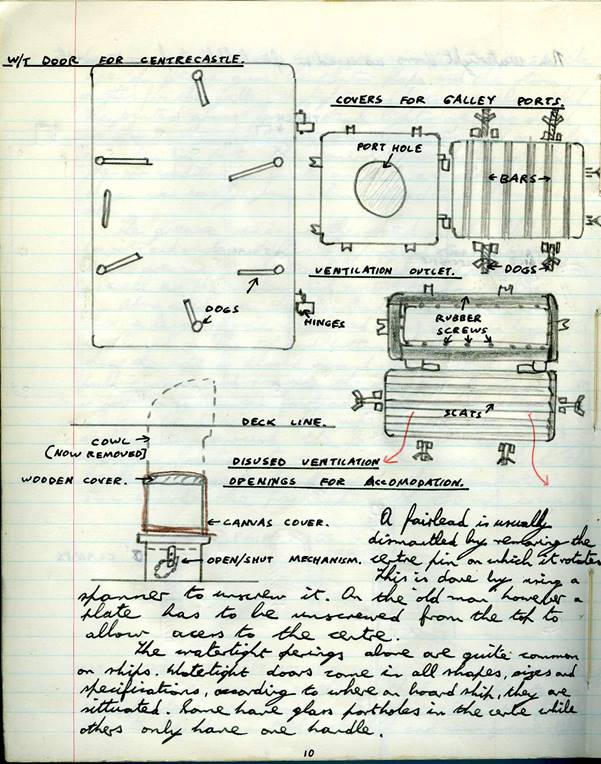 W/T DOOR FOR CENTRECASTLE.
COVERS FOR GALLEY PORTS.
PORT HOLE
BARS
DOGS
VENTILATION OUTLET.
DOGS
HINGES
RUBBER
SCREWS
SLATS
DECK LINE.
COWL
(NOW REMOVED)
DISUSED VENTILATION
OPENINGS FOR ACCOMODATION.
WOODEN COVER.
CANVAS COVER.
OPEN/SHUT MECHANISM.
A fairlead is usually
dismantled by removing the
centre pin on which it rotates
This is done by using a
spanner to unscrew it. On the 'old man' however a
plate has to be unscrewed from the top to
allow acess to the centre.
The watertight above are quite common
on ships. Watertight doors come in all shapes, sizes and
specifications, according to where on board ship, they are
sittuated. Some have glass portholes in the centre while
others only have one handle.
10